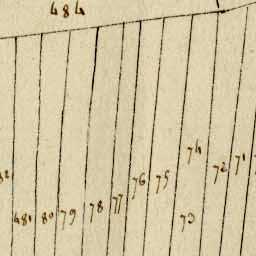 484
74
76
75
72
71
481
80
79
78
77
73